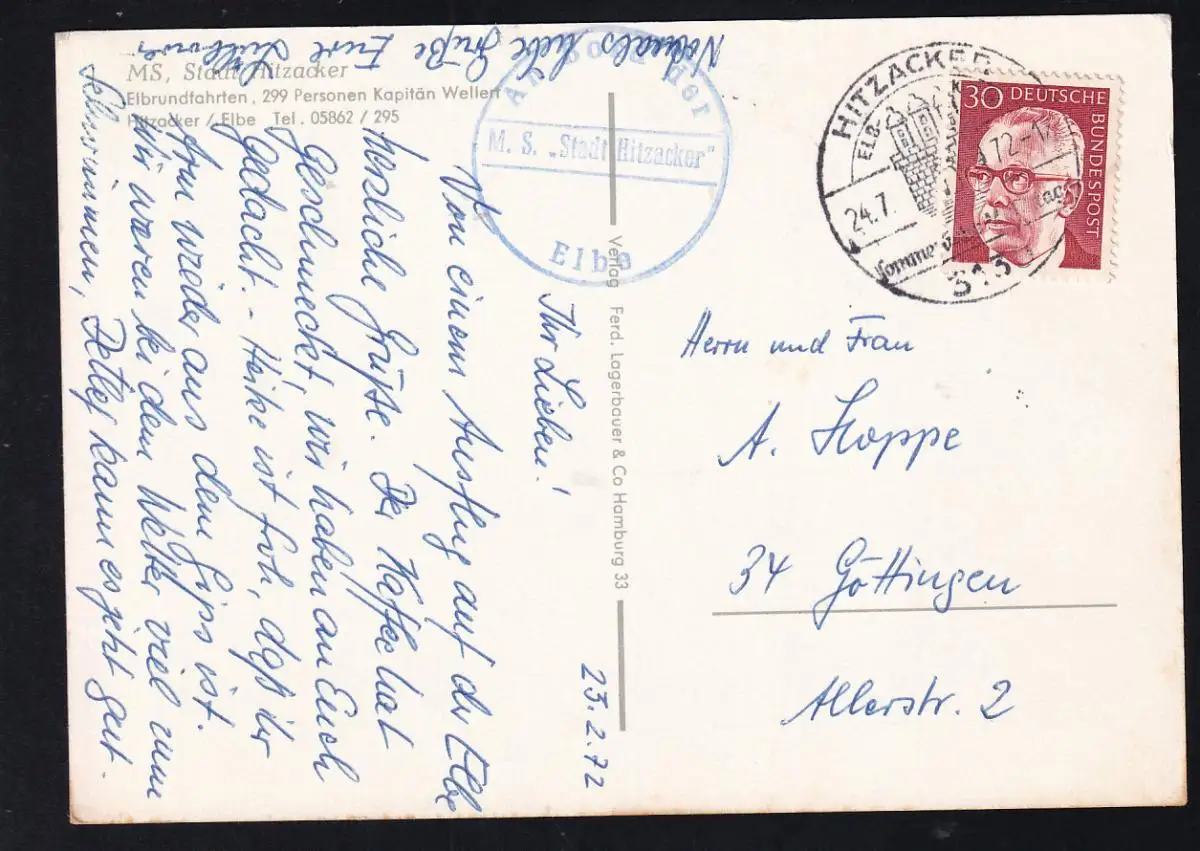 MS, Stadt Hitzacker
Elbrundfahrten, 299 Personen Kapitän Wellert
Hitzacker / Elbe Tel. 05862 / 295
An Bord der
M. S. „Stadt Hitzacker"
Elbe
HITZACKER
ELB-
24.7. 72-17
313
30 DEUTSCHE
BUNDESPOST
Verlag Ferd. Lagerbauer & Co Hamburg 33
23.2.72
Ihr Lieben!
Von einem Ausflug auf der Elbe
herzliche Grüße. Der Kaffee hat
geschmeckt, wir haben an Euch
gedacht. - Heike ist froh, daß ihr
Arm wieder aus dem Gips ist.
Wir waren bei dem Wetter viel zum
Schwimmen, Detlef kann es jetzt gut.
Nochmals liebe Grüße Eure
Herrn und Frau
A. Hoppe
34 Göttingen
Allerstr. 2